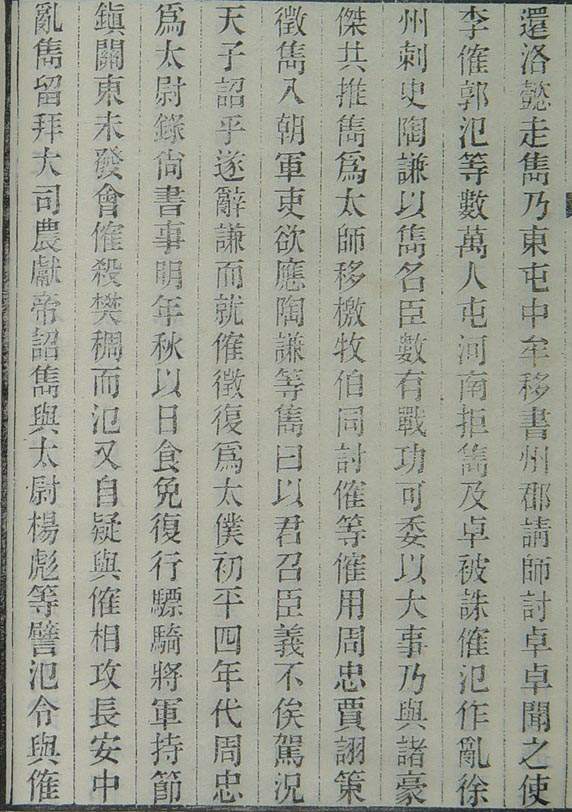 還洛懿走雋乃東屯中牟移書州郡請師討卓卓聞之使
李傕郭汜等數萬人屯河南拒雋及卓被誅傕汜作亂徐
州刺史陶謙以雋名臣數有戰功可委以大事乃與諸豪
傑共推雋爲太師移檄牧伯同討傕等傕用周忠賈詡策
徵雋入朝軍吏欲應陶謙等雋曰以君召臣義不俟駕況
天子詔乎遂辭謙而就傕徵復爲太僕初平四年代周忠
爲太尉錄尚書事明年秋以日食免復行驃騎將軍持節
鎮關東未發會傕殺樊稠而汜又自疑與傕相攻長安中
亂雋留拜大司農獻帝詔雋與太尉楊彪等譬汜令與傕